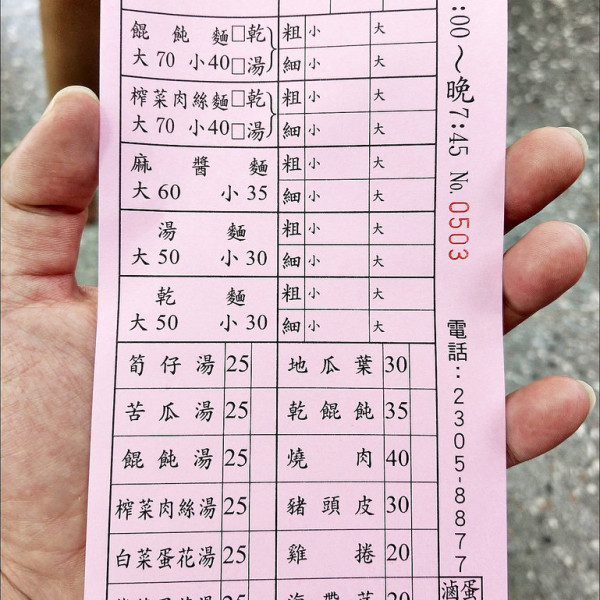 餛飩麵□乾 粗 小 大
大70 小40□湯 細 小 大
榨菜肉絲麵□乾 粗 小 大
大70 小40□湯 細 小 大
麻醬麵 粗 小 大
大60 小35 細 小 大
湯麵 粗 小 大
大50 小30 細 小 大
乾麵 粗 小 大
大50 小30 細 小 大
筍仔湯 25 地瓜葉 30
苦瓜湯 25 乾餛飩 35
餛飩湯 25 燒肉 40
榨菜肉絲湯 25 豬頭皮 30
白菜蛋花湯 25 雞捲 20
:00～晚7:45 No. 0503
電話:2305-8877
滷蛋